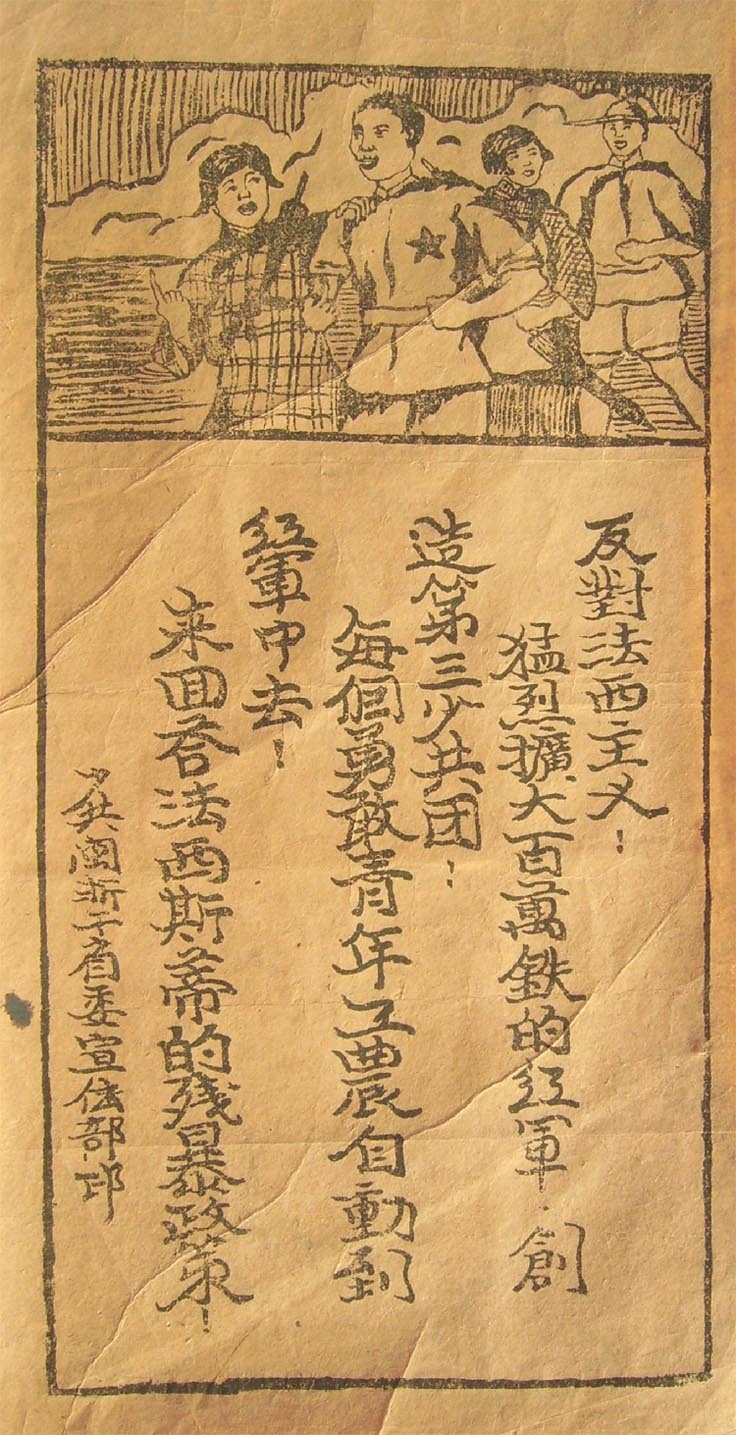 反對法西主义！
猛烈擴大百萬鉄的红軍．創
造第三少共团！
每個勇敢青年工農自動到
红軍中去！
来回荅法西斯蒂的残暴政策！
少共闽浙干省委宣传部印